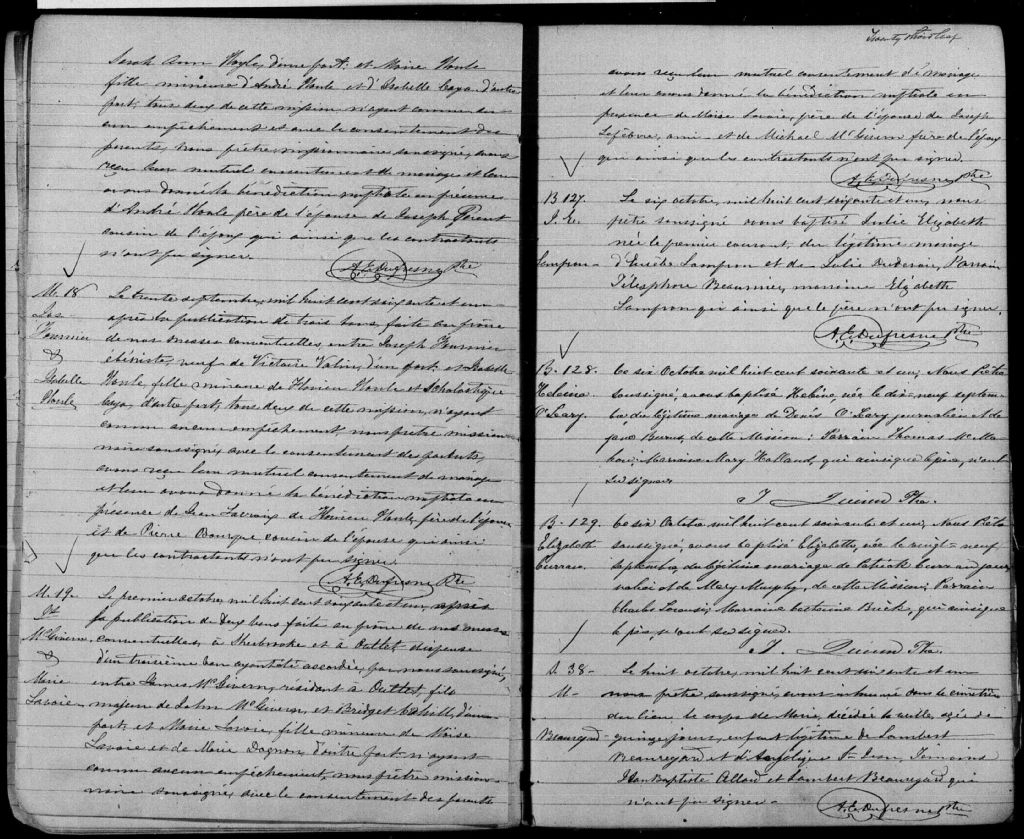 Sarah Ann Hoyle, d'une part; et Marie Houle
fille mineure d'André Houle et d'Isabelle d'autre
part; tous deux de cette mission n'ayant connu
aucun empêchement et avec le consentement des
parents, Nous prêtre, missionnaire soussigné, avons
reçu leur mutuel consentement de mariage et leur
avons donné la bénédiction nuptiale en présence
d'André Houle père de l'épouse de Joseph
cousin de l'époux qui ainsi que les contractants
n'ont pu signer.
A.E. Dufresne Ptre
M. 18
Jos
Fournier
&
Isabelle
Houle
Le trente septembre, mil huit cent soixante et un
après la publication de trois bans, faite au prône
de nos messes conventuelles, entre Joseph Fournier
ébéniste, veuf de Victoire Valin, d'un part; et Isabelle
Houle, fille mineure de Houle et Scholastique
d'autre part; tous deux de cette mission, n'ayant
connu aucun empêchement, nous prêtre mission-
naire soussigné, avec le consentement des parents,
avons reçu leur mutuel consentement de mariage
et leur avons donné la bénédiction nuptiale en
presence de Jean de Houle, père de l'épouse
et de Pierre Bourque cousin de l'epouse qui ainsi
que les contractants n'ont pu signer.
A.E. Dufresne Ptre
M. 19.
McGivern
&
Marie
Lavoie
Le premier octobre, mil huit cent soixante et un, après
la publication de deux bans faite au prône de nos messes
conventuelles, à Sherbrooke et à dispense
d'un troisième ban ayant été accordée, par nous soussigné,
entre James McGivern, résidant à fils
majeur de John McGivern, et Bridget Cahill, d'une
part; et Marie Lavoie, fille mineure de Moise
Lavoie et de Marie d'autre part n'ayant
connu aucun empêchement, nous prêtre mission-
naire soussigné, avec le consentement des parents
Twenty third leaf
avons reçu leur mutuel consentement de mariage
et leur avons donné la bénédiction nuptiale en
presence de Moise Lavoie, père de l'épouse de Joseph
Lefebvre, ami - et de Michael McGivern frère de l'époux
qui ainsi que les contractants n'ont pu signer.
A.E. Dufresne Ptre
B. 127.
J. E.
Lampron -
Le six octobre, mil huit cent soixante et un, nous
prêtre soussigné avons baptisé Julie Elizabeth
née le premier courant, du légitime mariage
d'Eusèbe Lampron et de Julie Parrain,
Télesphore marraine Elizabeth
Lampron qui ainsi que le père n'ont pu signer.
A.E. Dufresne Ptre
B. 128.
O'Leary.
Ce six Octobre mil huit cent soixante et un, Nous Prêtre
soussigné, avons baptisé Helène, née le dix-neuf septem-
bre, du légitime mariage de Denis O'Leary journalier et de
Jane Burns, de cette Mission: Parrain Thomas McMa-
hon; Marraine Mary Holland, qui ainsi que le père, n'ont
su signer.
J. Quinn Ptre.
B. 129.
Elizabeth
Curran.
Ce six Octobre mil huit cent soixante et un, Nous Prêtre
soussigné, avons baptisé Elizabeth, née le vingt-neuf
septembre, du légitime mariage de Patrick Curran jour-
nalier et de Mary Murphy, de cette Mission; Parrain
Charles Marraine Catherine qui ainsi que
le père, n'ont su signer.
J. Quinn Ptre.
S. 38 -
M -
Beauregard -
Le huit octobre, mil huit cent soixante et un
nous prêtre soussigné, avons inhumé dans le cimetière
du lieu le corps de Marie, décédée la veille, agée de
quinze jours, enfant légitime de Lambert
Beauregard et d'Angélique St Jean, Témoins
Jean Baptiste Allard et Lambert Beauregard qui
n'ont pu signer -
A.E. Dufresne Ptre